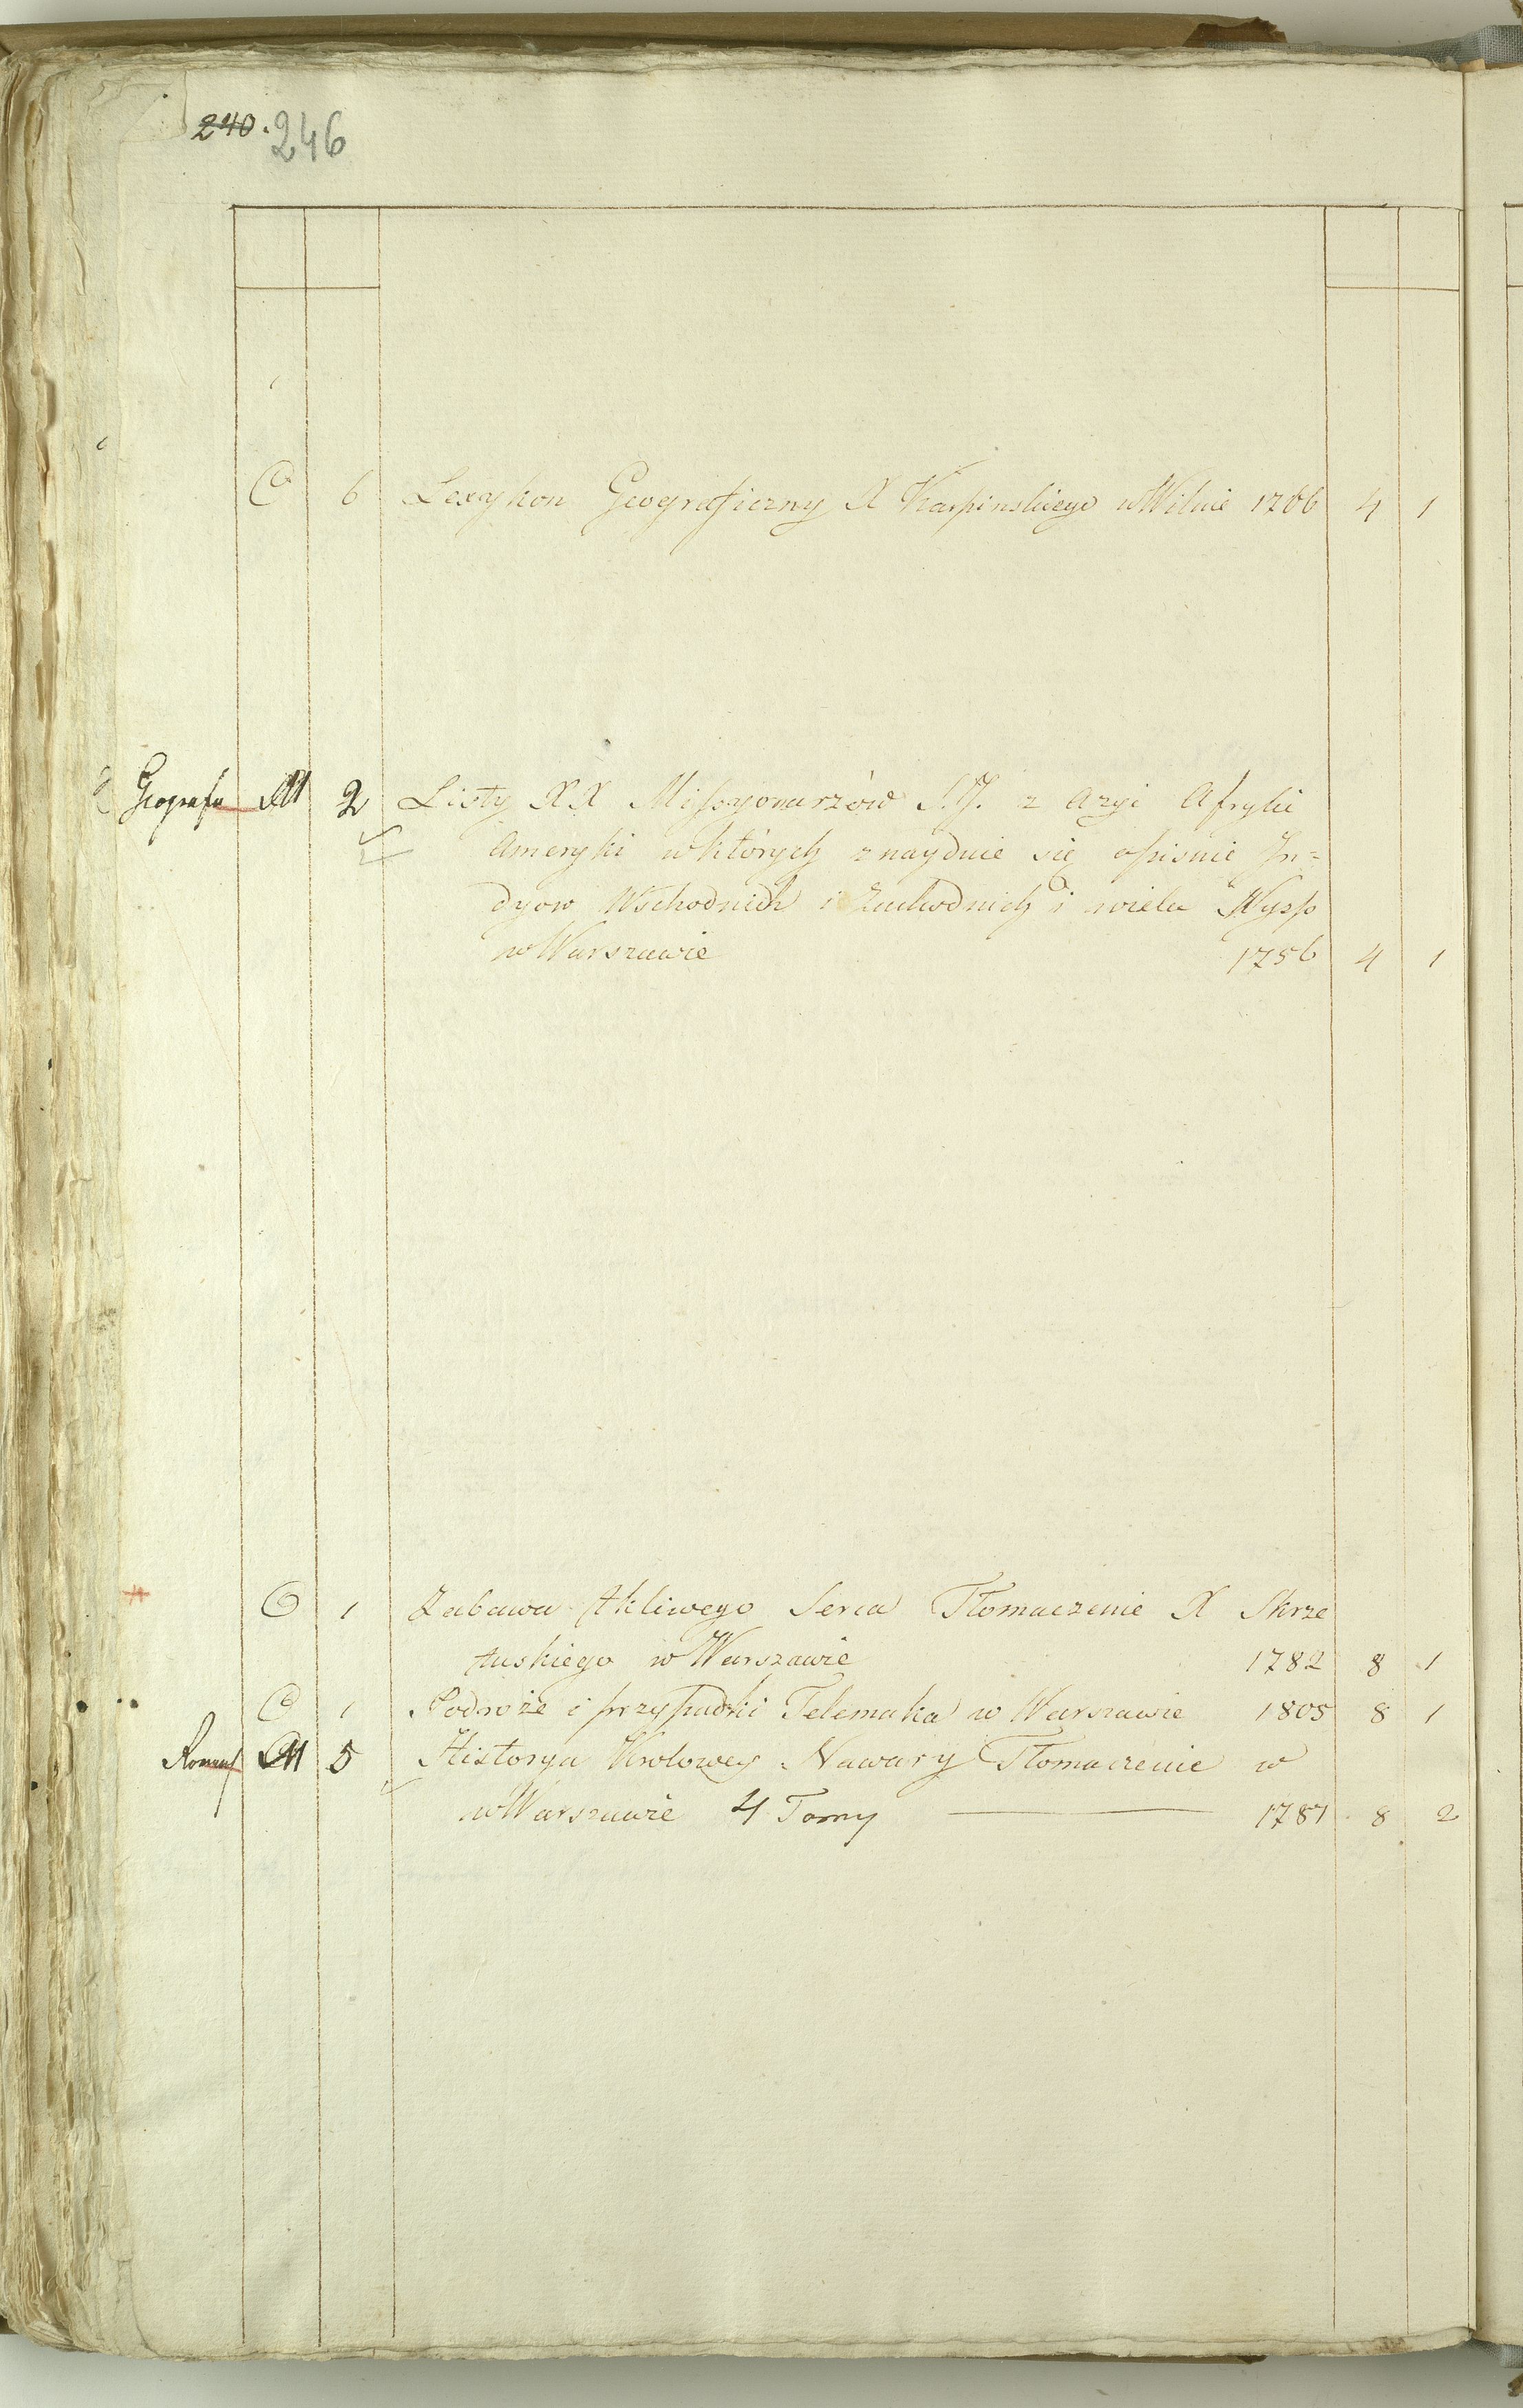 240. 246
C 6 Lexykon Geograficzny X Karpinskiego w Wilnie 1766 4 1
Geografa M 2 Listy XX Missyonarzów S.J. z Azyi Afryki
Ameryki w których znayduie się opisnie In=
dyow Wschodnich i Zachodnich i wielu Wysp
w Warszawie 1756 4 1
C 1 Zabawa tkliwego Serca Tłomaczenie X Skrze
tuskiego w Warszawie 1782 8 1
C 1 Podroże i przypadki Telemaka w Warszawie 1805 8 1
Romans M 5 Historya Krolowey Nawary Tłomaczenie w
w Warszawie 4 Tomy 1787 8 2